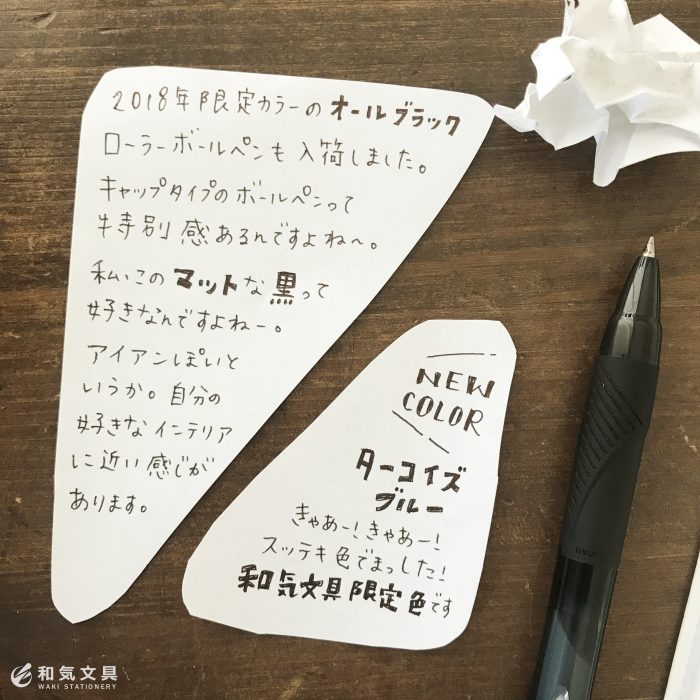 2018年限定カラーのオールブラック
ローラーボールペンも入荷しました。
キャップタイプのボールペンって
特別感あるんですよね〜。
私、このマットな黒って
好きなんですよねー。
アイアンぽいと
いうか。自分の
好きなインテリア
に近い感じが
あります。
NEW
COLOR
ターコイズ
ブルー
きゃあー!きゃあー!
スッテキ色でまっした!
和気文具限定色です
JAPAN
和気文具
WAKI STATIONERY